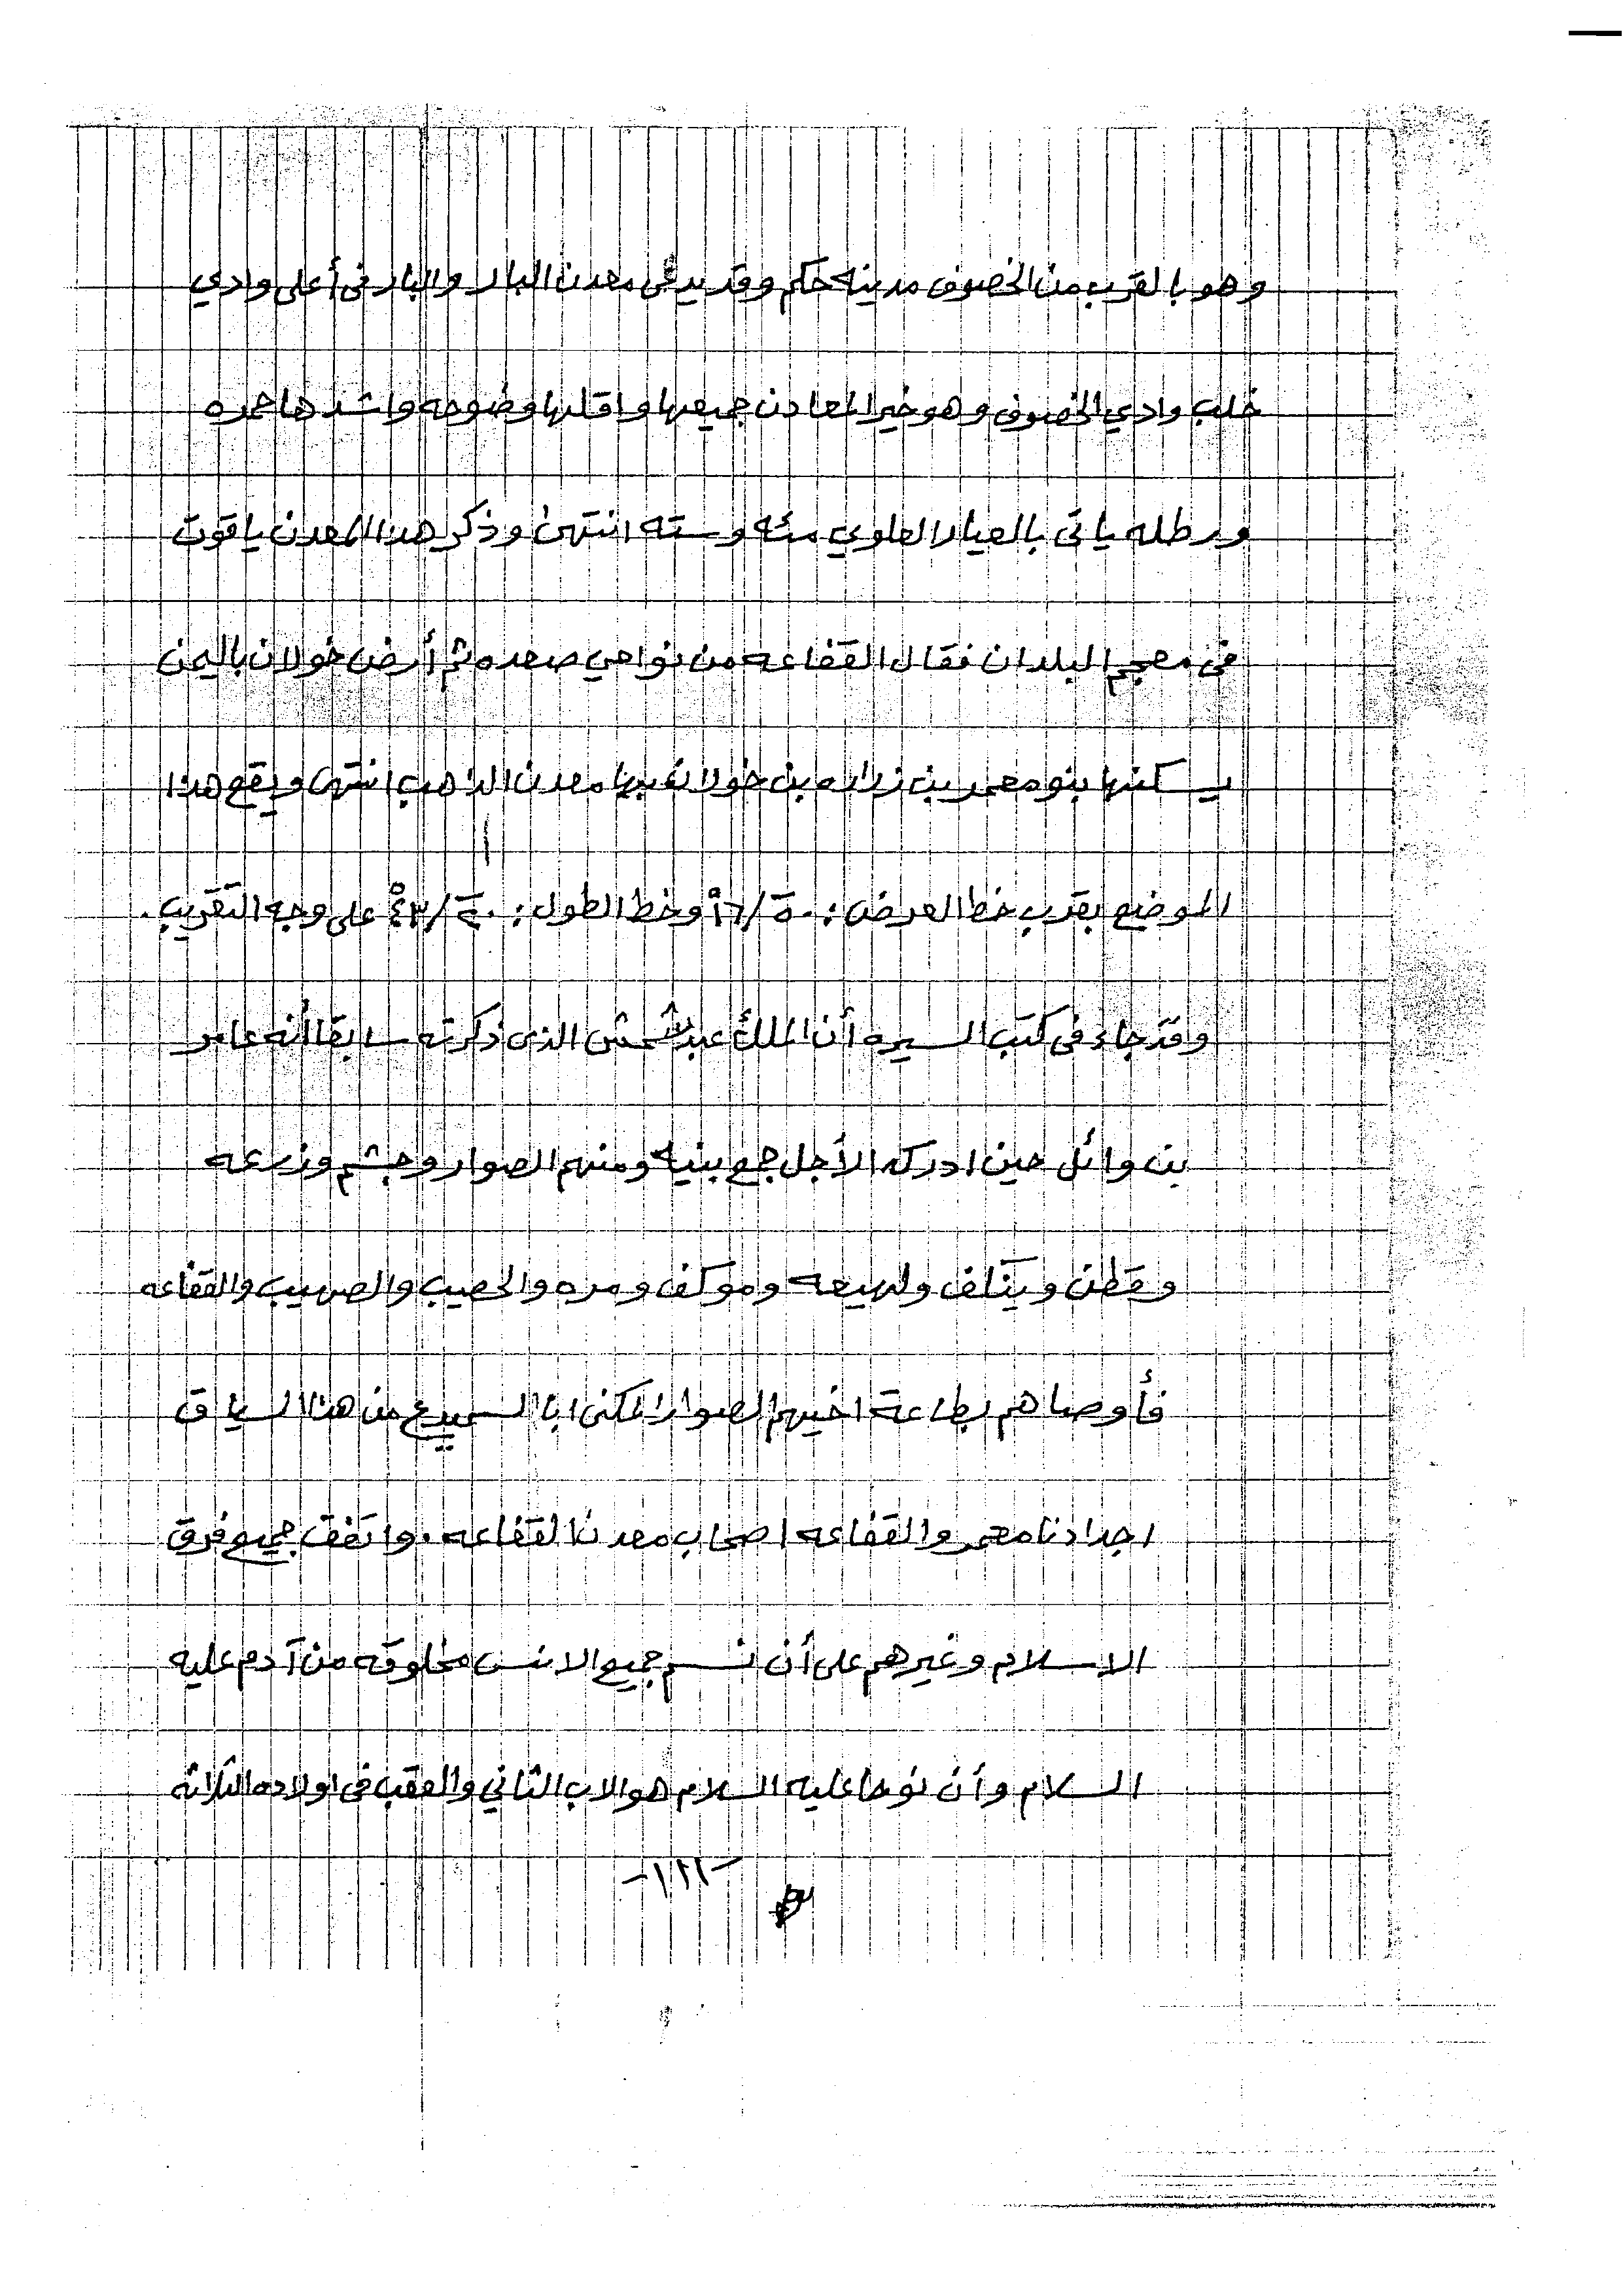 وهو بالقرب من الخصوف مدينه حكم وقد يدعى معدن البار والبار فى أعلى وادي
خلب وادي الخصوف وهو خير المعادن جميعها واقلها وضوحه واشدها حمره
ورطله ياتى بالعيار العلوي مئه وسته انتهى وذكر هذا المعدن ياقوت
فى معجم البلدان فقال القفاعه من نواحي صعده ثم أرض خولان باليمن
يسكنها بنو معمر بن زراره بن خولان بها معدن الذهب انتهى ويقع هذا
الموضع بقرب خط العرض : ٥٠َ/١٦ْ وخط الطول : ٤٠َ/٤٣ْ على وجه التقريب .
وقد جاء فى كتب السيره أن الملك عبد شمس الذى ذكرته سابقا أنه عابر
بن وائل حين ادركه الأجل جمع بنيه ومنهم الصوار وجشم وزرعه
وقطن وينلف ولهيعه وموكف ومره والخصيب والصهيب والقفاعه
فأوصاهم بطاعة اخيهم الصوار المكنى ابا السميدع من هذا السياق
اجدادنا معمر والقفاعه اصحاب معدن القفاعه . واتفق جميع فرق
الاسلام وغيرهم على أن نسم جميع الانس مخلوقه من آدم عليه
السلام وأن نوحا عليه السلام هو الاب الثاني والعقب فى اولاده الثلاثه
-١٢٢-